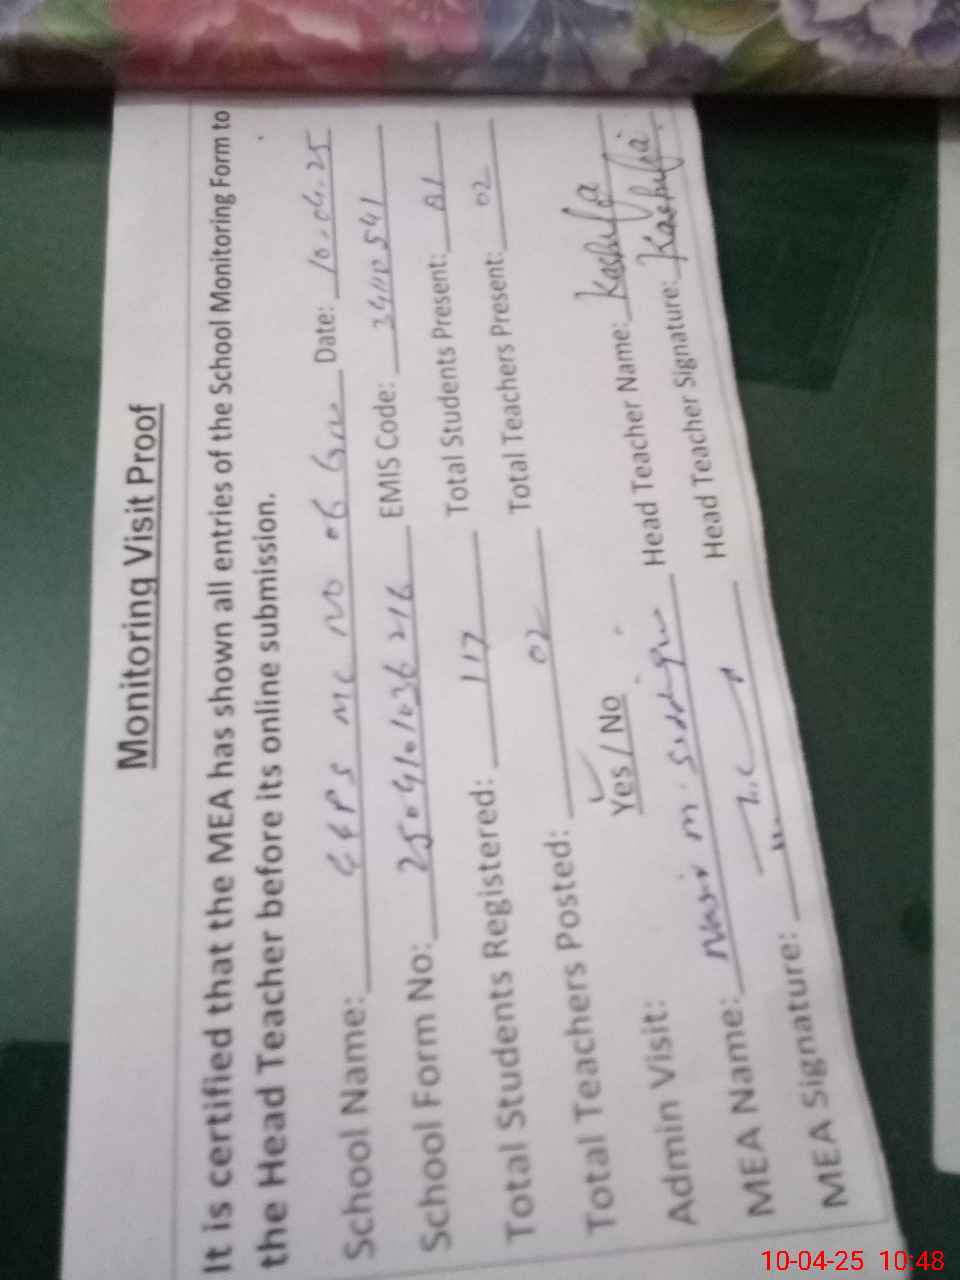 Monitoring Visit Proof
It is certified that the MEA has shown all entries of the School Monitoring Form to
the Head Teacher before its online submission.
School Name: GGPS MC NO 06 Date: 10-04-25
School Form No: EMIS Code:
Total Students Registered: 117 Total Students Present: 01
Total Teachers Posted: 02 Total Teachers Present: 02
Admin Visit: Yes / No
MEA Name: Nasir M. Siddiqui Head Teacher Name: Kashifa
MEA Signature: Head Teacher Signature: Kashifa
10-04-25 10:48